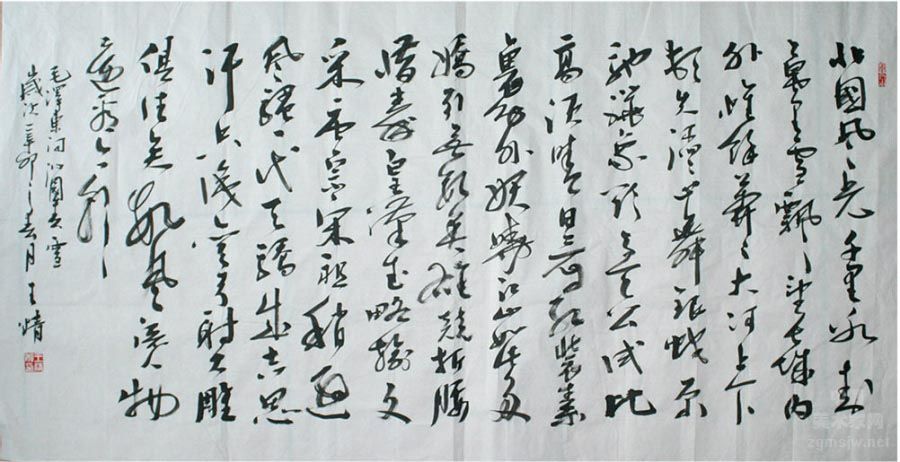 北國风光千里冰封
万里雪飘望长城内
外惟餘莽莽大河上下
顿失滔滔山舞银蛇原
驰蜡象欲与天公试比
高须晴日看红装素
裹分外妖娆江山如此多
娇引无数英雄竞折腰
惜秦皇汉武略输文
采唐宗宋祖稍逊
风骚一代天骄成吉思
汗只识弯弓射大雕
俱往矣数风流人物
还看今朝
毛泽东词沁园春雪
岁次辛卯之春月王晴
美术家网
zgmsjw.net